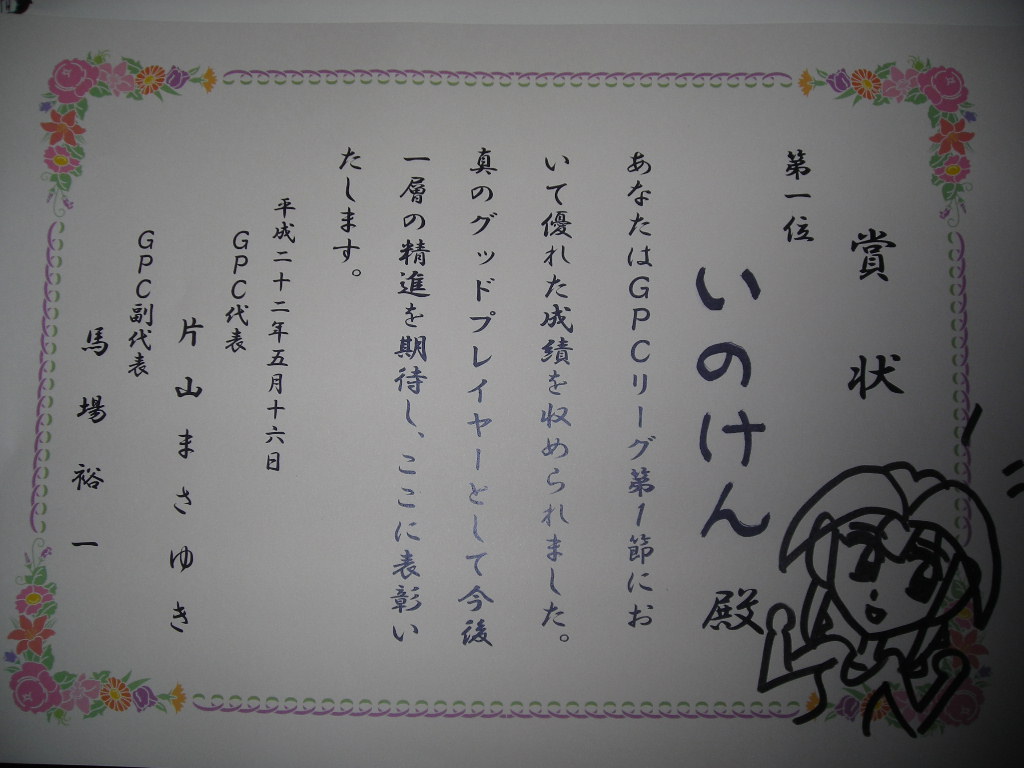 賞状
第一位
いのけん 殿
あなたはGPCリーグ第1節にお
いて優れた成績を収められました。
真のグッドプレイヤーとして今後
一層の精進を期待し、ここに表彰い
たします。
平成二十二年五月十六日
GPC代表
片山まさゆき
GPC副代表
馬場裕一